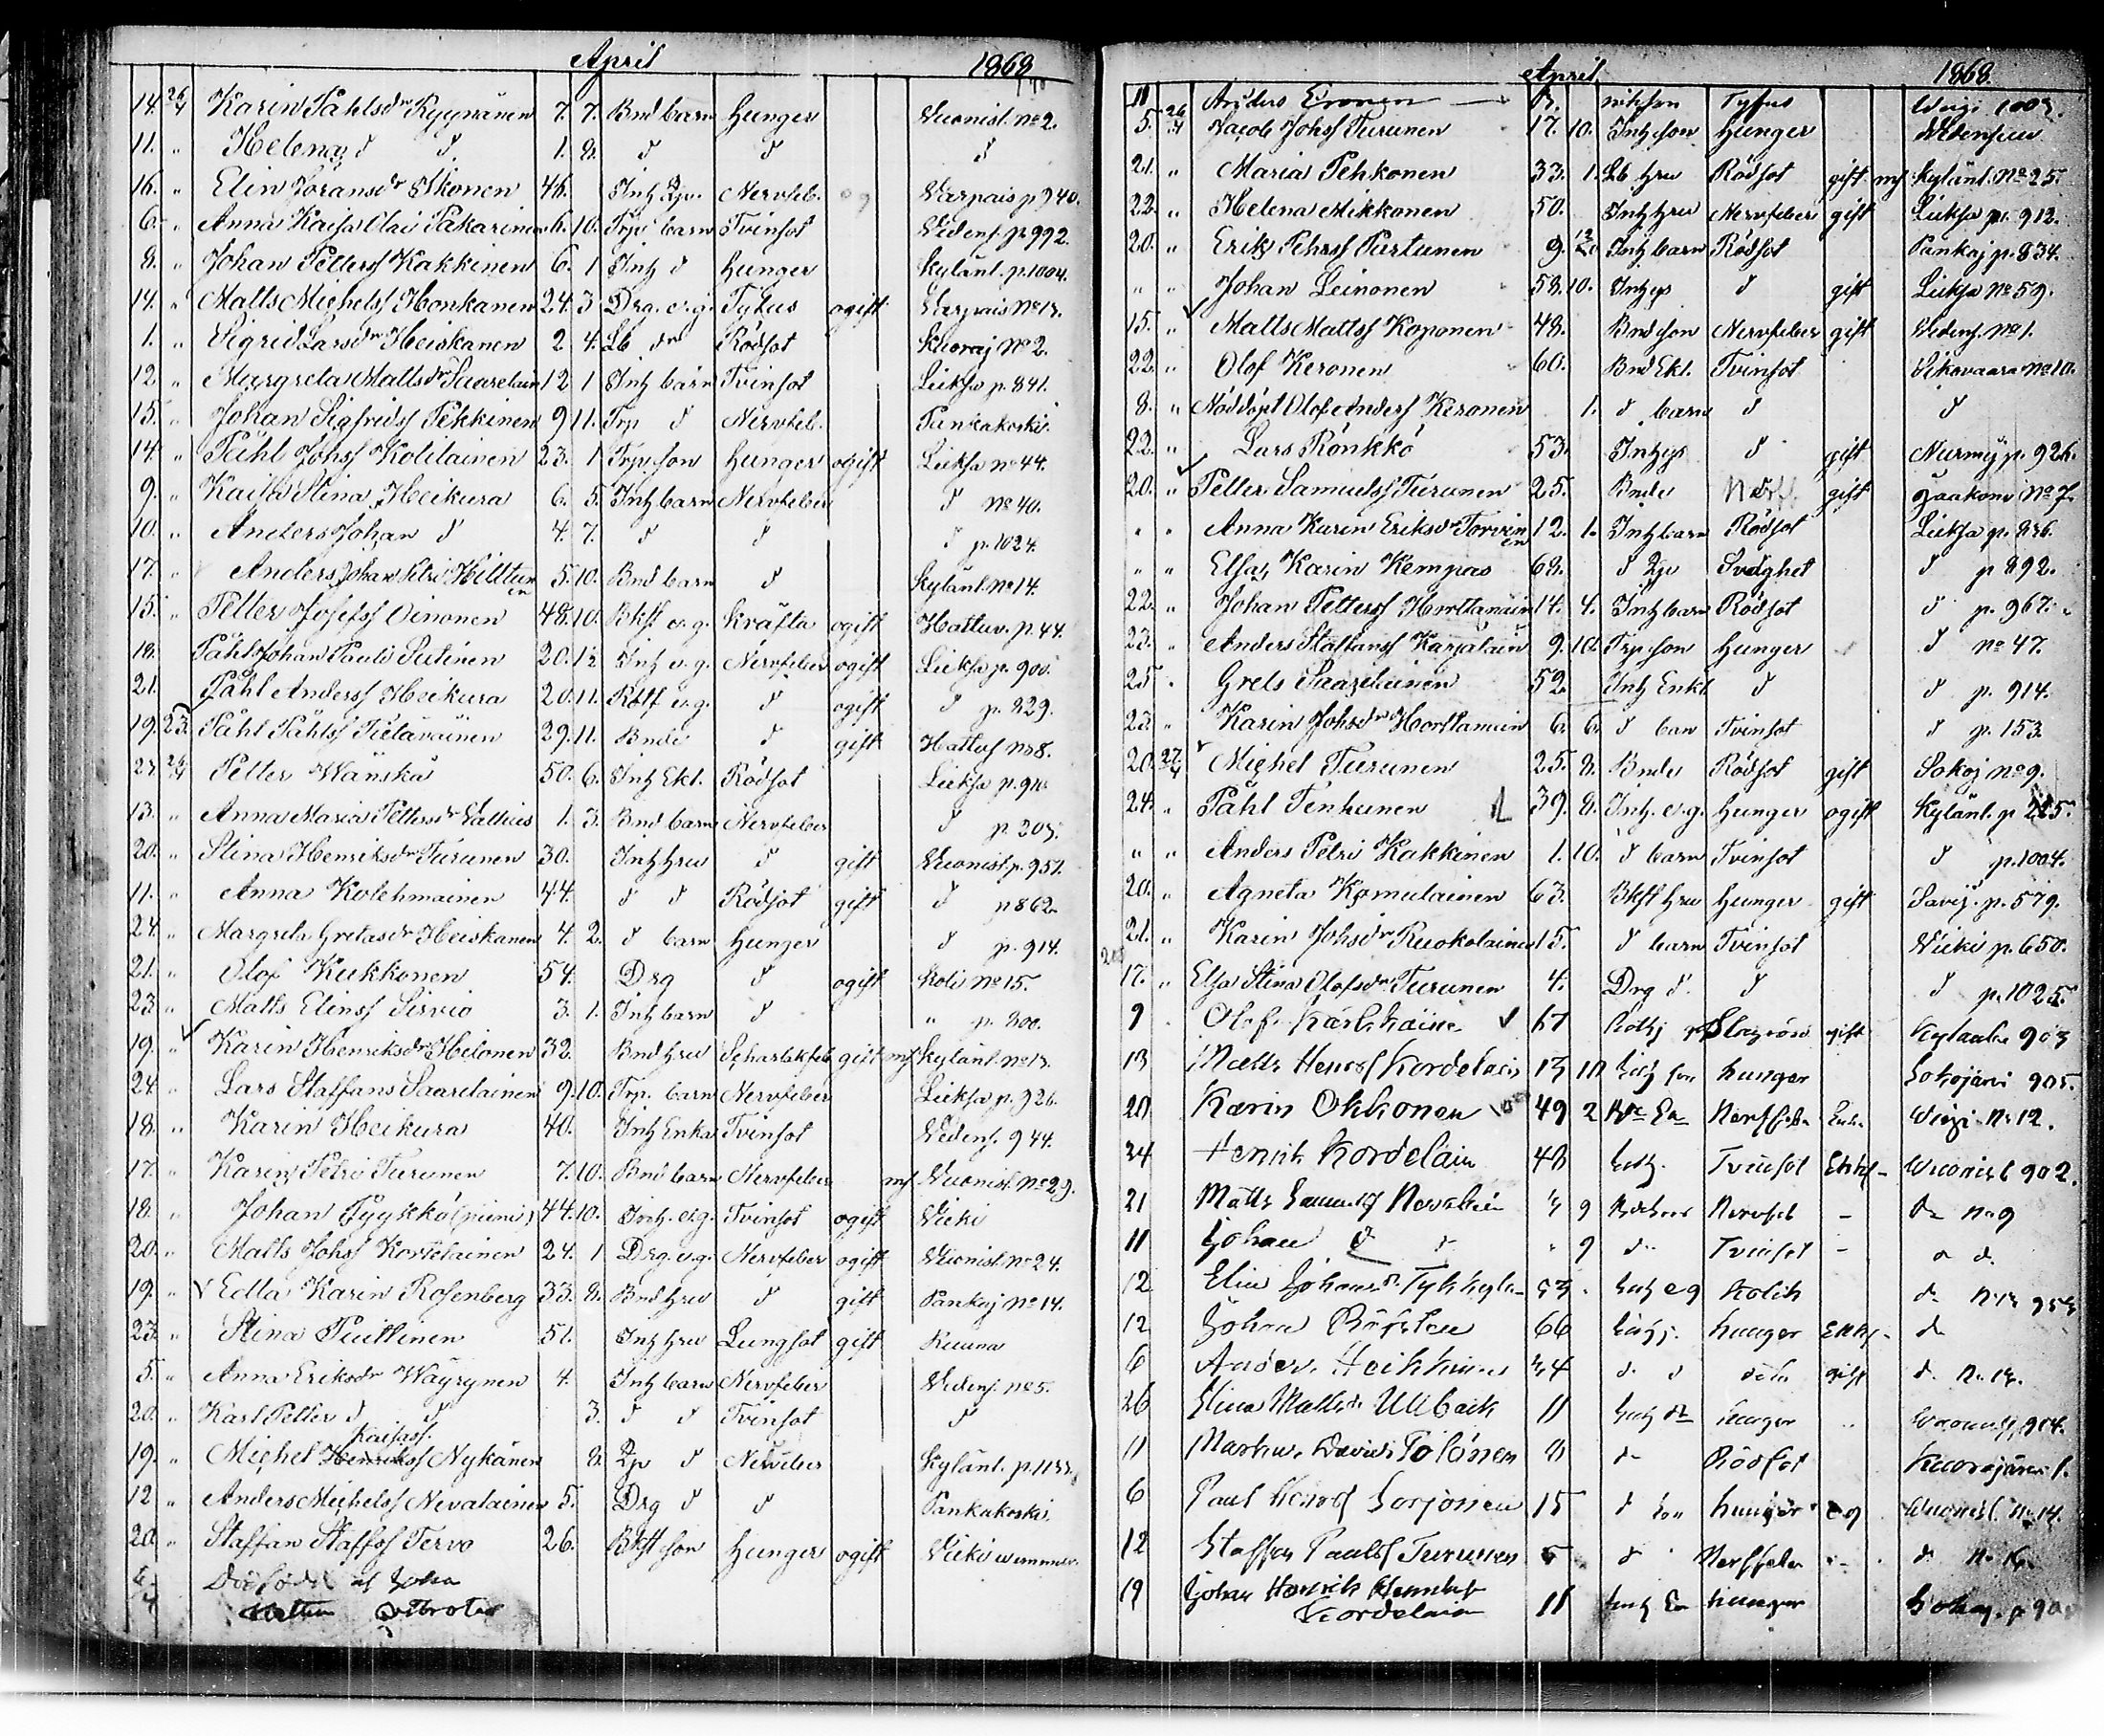 April 1868
14. 26/4 Karin Påhlsdr Kyyrönen 7. 7. Bnd barn Hunger Vuonisl. No 2.
11. " Helena d d 1. 8. d d d
16. " Elin Göransdr Ikonen 46. Inh Qv. Nervfeb. Varpais p 940.
6. " Anna Kaisa Olai Pakarinen 6. 10. Trp barn Tvinsot Videns. p 992.
8. " Johan Petterss Kakkinen 6. 1 Inh d Hunger Kylänl. p. 1004.
14. " Matts Michelss Honkanen 24. 3 Drg. e.g. Tyfus ogift Varpais No 13.
1. " Sigrid Larsdr Heiskanen 2 4. Lb dr Rödsot Kuoraj No 2.
12. " Margreta Mattsdr Saarelain 12 1 Inh barn Tvinsot Lieksa p. 841.
15. " Johan Sigfridss Pekkinen 9 11. Trp d Nervfeb. Pankakoski.
14. " Påhl Johss Kolilainen 23. 1 Trp. son Hunger ogift Lieksa no 44.
9. " Kaisa Stina Heikura 6. 5. Inh barn Nervfeber d No 40.
10. " Anders Johan d 4. 7. d d d p. 1024.
17. " Anders Johan Petri Hilttunen 5. 10. Bnd barn d Kylänl. No 14.
15. " Petter Josefss Oinonen 48. 10. Bkst e.g. Kräfta ogift Hattuv. p. 44.
18. Påhl Johan Pauli Putinen 20. 1/2 Inh e.g. Nervfeber ogift Lieksa p. 900.
21. Påhl Anderss Heikura 20. 11. Rotf e.g. d ogift d p. 829.
19. 23. Påhl Påhlss Pielaväinen 29. 11. Bnde d gift Hattuv No 8.
23. 26/4 Petter Wänskä 50. 6. Inh Ekl. Rödsot Lieksa p. 911.
13. " Anna Maria Pettersdr Vallius 1. 3. Bnd barn Nervfeber d p. 203.
20. " Stina Henriksdr Turunen 30. Inh hru d gift Vuonisl. p. 957.
11. " Anna Kolehmainen 44. d d Rödsot gift d p 862.
24. " Margreta Gretasdr Heiskanen 4. 2. d barn Hunger d p. 914.
21. " Olof Kukkonen 54. Drg d ogift Koli No 15.
23. " Matts Elinss Sirviö 3. 1. Inh barn d " p. 800.
19. " Karin Henriksdr Hilonen 32. Bnd hru Scharlakfeb gift mf Kylänl. No 13.
24. " Lars Staffans Saarelainen 9. 10. Trp. barn Nervfeber Lieksa p. 926.
18. " Karin Heikura 40. Inh Enka Tvinsot Videns. 944.
17. " Karin Petri Turunen 7. 10. Bnd barn Nervfeber mf Vuonisl. No 29.
18. " Johan Pyykkö (piini) 44. 10. Inh. e.g. Tvinsot ogift Vieki
20. " Matts Johss Kortelainen 24. 1 Drg. e.g. Nervfeber ogift Vuonisl. No 24.
19. " Edla Karin Rosenberg 33. 8. Bnd hru d gift Pankaj No 14.
23. " Stina Puittinen 51. Inh hru Lungsot gift Ruuna
5. " Anna Eriksdr Wäyrynen 4. Inh barn Nervfeber Videns. No 5.
20. " Karl Petter d d 3. d d Tvinsot d
Kaisass.
19. " Michel Henrikss Nykänen 8. Qv d Nervfeber Kylänl. p. 1133
12 " Anders Michelss Nevalainen 5. Drg d d Pankakoski.
20. " Staffan Staffss Tervo 26. Bkst son Hunger ogift Vieki
Dödfödd af

April 1868.
11 Anders Eronen Tyfus 1003.
5. 26/4 Jacob Johss Turunen 17. 10. Inh. son Hunger Vidensuu
21. " Maria Pehkonen 33. 1. Lb hru Rödsot gift mf Kylänl. No 25.
22. " Helena Mikkonen 50. Inh hru Nervfeber gift Lieksa p. 912.
20. " Erik Pehrss Partunen 9. Inh barn Rödsot Pankaj p. 834.
" " Johan Leinonen 58. 10. Inhys d gift Lieksa No 59.
15. " Matts Mattss Koponen 48. Bnd son Nervfeber gift Videns. No 1.
22. " Olof Keronen 60. Bnd Ekl. Tvinsot Sikovaara No 10.
8. " Nöddöpt Olof Anderss Keronen 1. d barn d d
22. " Lars Rönkkö 53. Inhys d gift Nurmij p. 926.
20. " Petter Samuelss Turunen 25. Bnde Nervf. gift Jaakoni No 7.
" " Anna Karin Eriksdr Torvinen 12. 1. Inh barn Rödsot Lieksa p. 836.
" " Elsa, Karin Kempas 68. d Qv Svaghet d p 892.
22. " Johan Petterss Horttanain 14. 4. Inh barn Rödsot d p. 967.
23. " Anders Staffanss Karjalain 9. 10. Trp son Hunger d No 47.
25 " Grels Saarelainen 52. Inh Enkl d d p. 914.
23. " Karin Johsdr Horttanain 6. 6. d barn Tvinsot d p. 153.
20. 27/4 Michel Turunen 25. 8. Bnde Rödsot gift Sokoj No 9.
24. " Påhl Tenhunen 39. 8. Inh. e.g. Hunger ogift Kylänl. p 225.
" " Anders Petri Kakkinen 1. 10. d barn Tvinsot d p. 1004.
20. " Agneta Komulainen 63. Bkst hru Hunger gift Savij. p. 579.
21. " Karin Johsdr Ruokolainen 15. d barn Tvinsot Vieki p. 650.
17. " Elsa Stina Olofsdr Turunen 4. Drg d. d d p. 1025.
9 Olof Kärkkäine 67 Slag gift Kylänl. 903
13 Matts Henrss Kordelain 13 10 Inh son hunger Sokojärvi 905.
20 Karin Okkonen 49 2 Nervfeb No 12.
24 Henrik Kordelain 48 Inh. Tvinsot Enkl Wuonisl 902.
21 Matts Samuelss Nevalain 9 Nervfeb – d No 9
11 Johan d d " 9 d Tvinsot – d d.
12 Elin Johansdr Inh e g Kolik d
12 Johan 66 Inhys. hunger Enkl. d
6 Anders Heikkinen 44 d d gift d. No 14.
26 Elina Mattsdr Ullbach 11 Inh dr hunger 904.
11 Markus Davids Tolönen 8 d Rödsot Kuorajärvi 1.
6 Paul Henrss Sorjonen 15 d son hunger e g Wuonisl. No 14.
12 Staffan Paulss Turunen 5 d Nervfeber d No 14.
19 Johan Henrik Henrikss
Kordelain 11 Inh hunger Sokoj. p 90